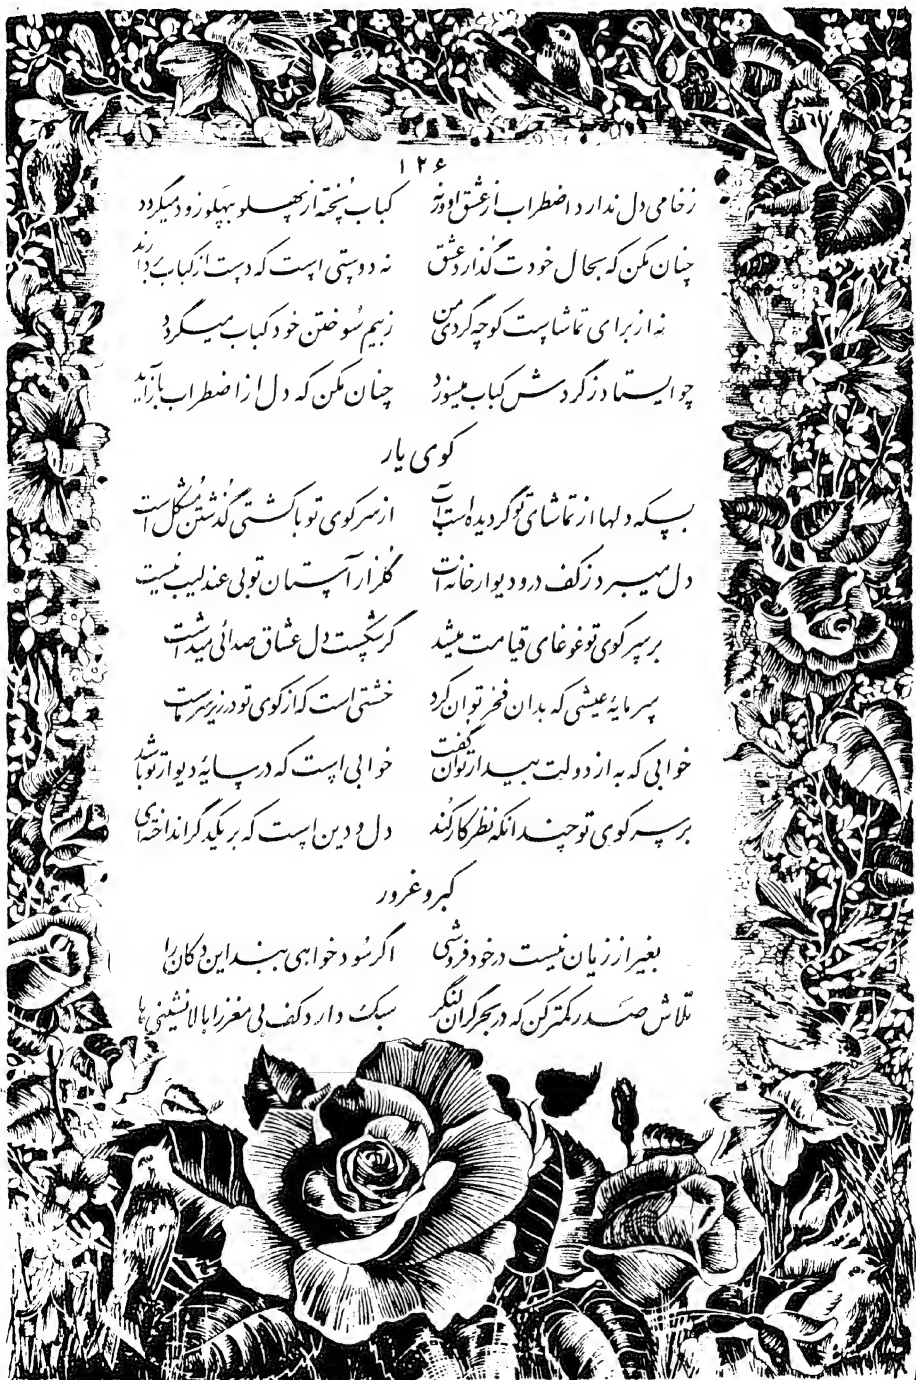 ۱۲۶
زخامی دل ندارد اضطراب از عشق او ورنه کباب پُخته از پهلو بپهلو زود میگردد
چنان مکن که بحال خودت گذارد عشق نه دوستی است که دست از کباب بردارند
نه از برای تماشاست کوچه گردی من زبیم سُوختن خود کباب میگردد
چو ایستاد ز گردش کباب میسوزد چنان مکن که دل از اضطراب باز آید
کوی یار
بسکه دلها از تماشای تو گردیده است آب از سر کوی تو با کشتی گذشتن مُشکل است
دل میبرد ز کف در و دیوار خانه ات گلزار آستان تو بی عندلیب نیست
بر سر کوی تو غوغای قیامت میشد گر شکست دل عشاق صدائی میداشت
سرمایۀ عیشی که بدان فخر توان کرد خشتی است که از کوی تو در زیر سر ماست
خوابی که به از دولت بیدار توان گفت خوابی است که در سایۀ دیوار تو باشد
بر سر کوی تو چندانکه نظر کار کند دل و دین است که بر یکدگر انداخته ای
کبر و غرور
بغیر از زیان نیست در خود فروشی اگر سُود خواهی ببند این دکان را
تلاش صَدر کمتر کن که در بحر گران لنگر سبک دارد کف بی مغز را بالا نشینی ها